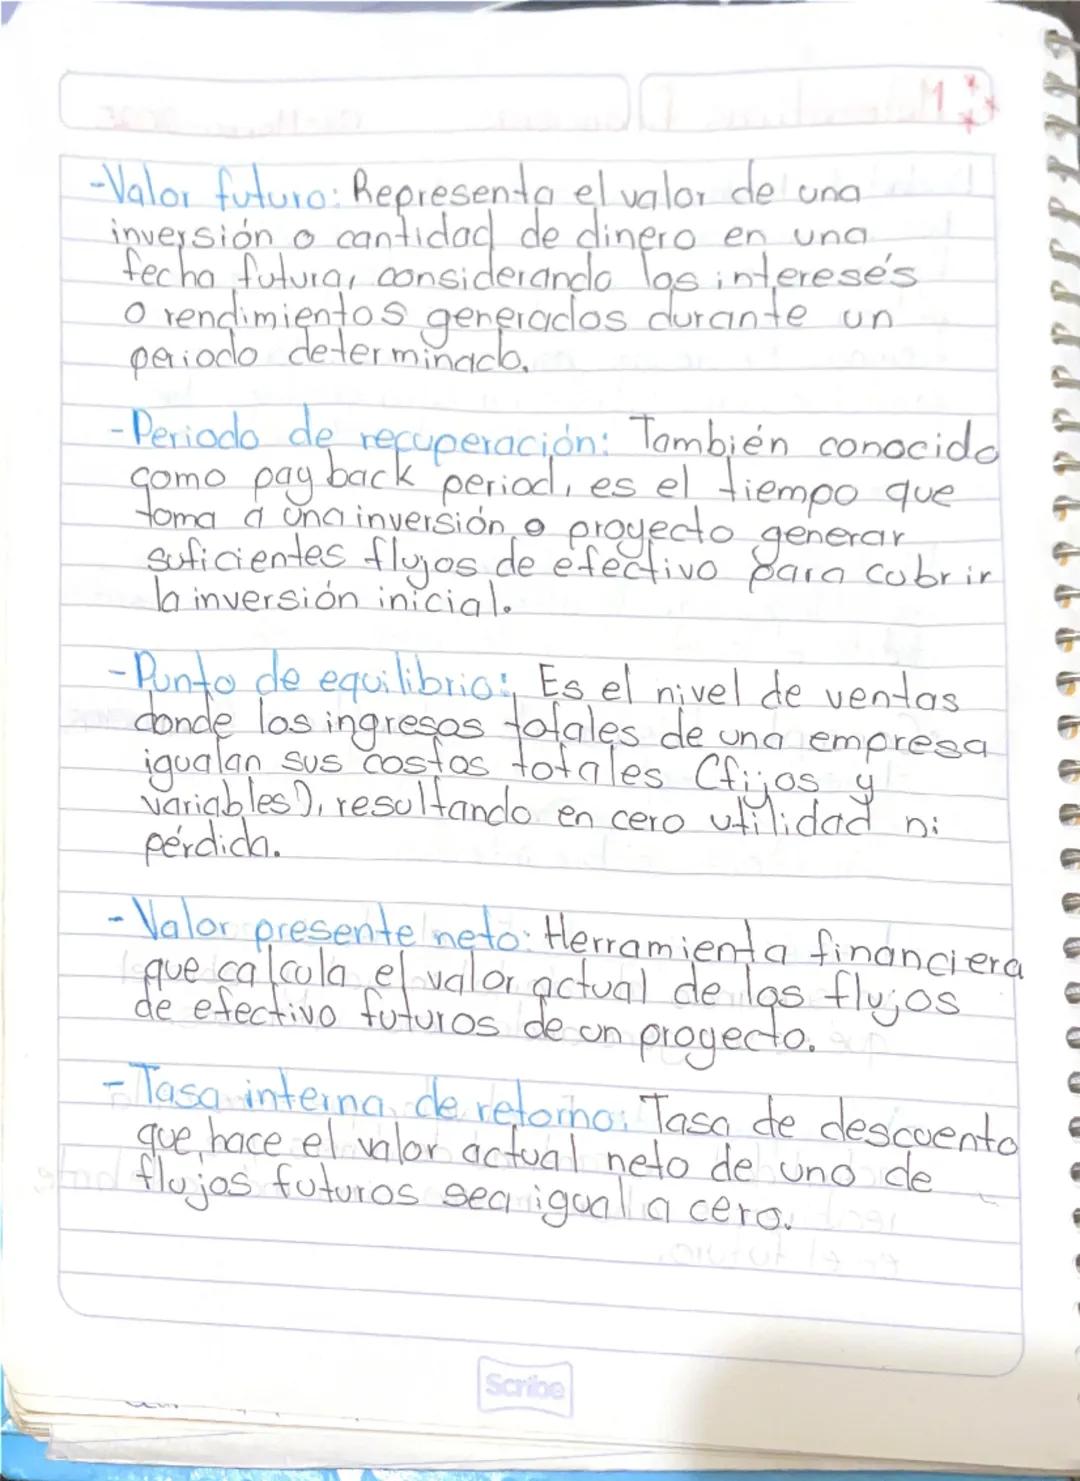 -Valor futuro: Representa el valor de una
inversión o cantidad de dinero en una
fecha futura, considerando los interesés
o rendimientos generados durante un
periodo determinado.
-Periodo de recuperación: También conocido
como payback period, es el tiempo que
toma a una inversión o proyecto generar
suficientes flujos de efectivo para cubrir
la inversión inicial.
-Punto de equilibrio: Es el nivel de ventas
donde los ingresos totales de una empresa
igualan sus costos totales (fijos y
variables), resultando en cero utilidad ni
pérdida.
-Valor presente neto: Herramienta financiera
que calcula el valor actual de los flujos
de efectivo futuros de un proyecto.
-Tasa interna de retorno: Tasa de descuento
que hace el valor actual neto de uno de
flujos futuros sea igual a cero.
Scribe